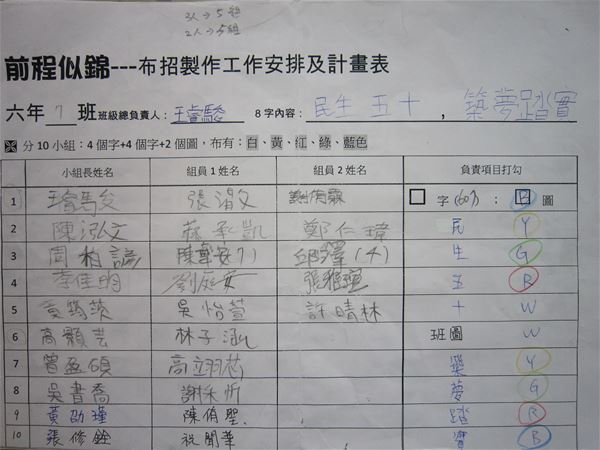 3人→5組
2人→5組
前程似錦---布招製作工作安排及計畫表
六年 7 班 班級總負責人：王睿駿 8字內容：民生五十，築夢踏實
分10小組：4個字+4個字+2個圖，布有：白、黃、紅、綠、藍色
小組長姓名 組員1姓名 組員2姓名 負責項目打勾
1 王睿駿 張淯文 字(607)： 圖
2 陳泓文 蔣承凱 鄭仁瑋 民 Y
3 周柏諺 邱 生 G
4 李佳明 劉庭安 張雅瑄 五 R
5 黃筠茨 吳怡萱 許晴林 十 W
6 高顥芸 林子涵 班圖 W
7 曾盈碩 高翊芯 築 Y
8 吳書喬 謝禾忻 夢 G
9 黃劭瑾 陳侑聖 踏 R
10 張修銓 祝開華 實 B